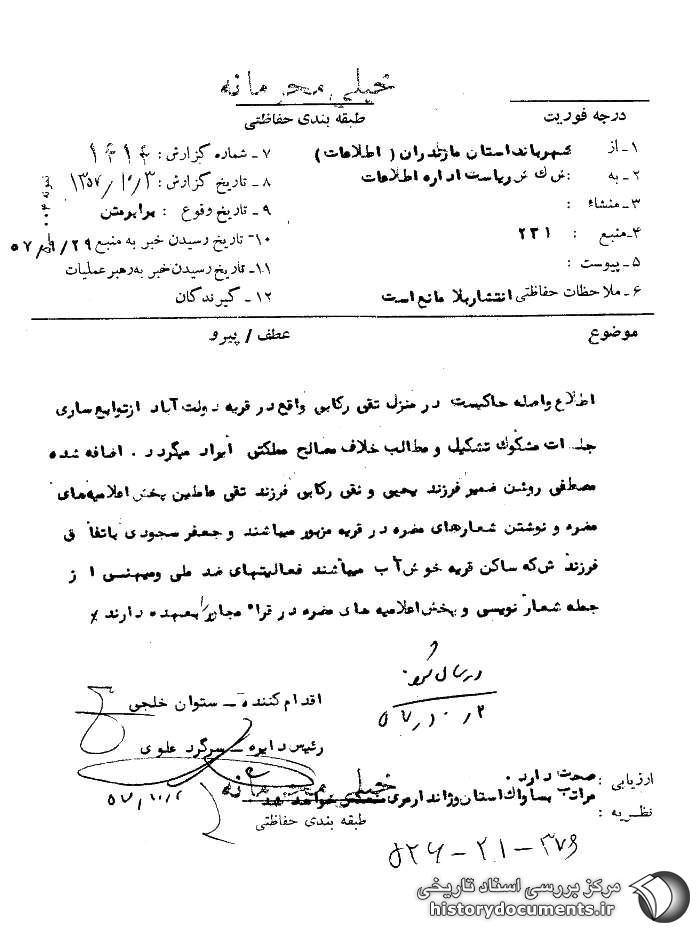 خیلی محرمانه
طبقه بندی حفاظتی
درجه فوریت
۱ـ از : شهربانی استان مازندران ( اطلاعات )
۲ـ به : ش ک ش ریاست اداره اطلاعات
۳ـ منشاء :
۴ـ منبع : ۲۳۱
۵ـ پیوست :
۶ـ ملاحظات حفاظتی انتشار بلا مانع است
۷ـ شماره گزارش :
۸ـ تاریخ گزارش : ۱۳۵۷/۱۰/۳
۹ـ تاریخ وقوع : برابر متن
۱۰ـ تاریخ رسیدن خبر به منبع ۵۷/۹/۲۹
۱۱ـ تاریخ رسیدن خبر به رهبر عملیات
۱۲ـ گیرندگان
نمونه ۰۰۴
موضوع
عطف / پیرو
اطلاع واصله حاکیست در منزل تقی رکابی واقع در قریه دولت آباد از توابع ساری
جلسات مشکوک تشکیل و مطالب خلاف مصالح مملکتی ایراد میگردد . اضافه شده
مصطفی روشن ضمیر فرزند یحیی و نقی رکابی فرزند تقی عاملین پخش اعلامیه‌های
مضره و نوشتن شعارهای مضره در قریه مزبور میباشند و جعفر سجودی باتفاق
فرزندش که ساکن قریه خوش آب میباشند فعالیتهای ضد ملی ومیهنی از
جمله شعار نویسی و پخش اعلامیه های مضره در قراء مجاور بعهده دارند
ارسال شود
۵۷/۱۰/۲
اقدام کننده ـ ستوان خلجی
رئیس دایره ـ سرگرد علوی
۵۷/۱۰/۲
ارزیابی : صحت دارد .
نظریه : مراتب بساواک استان وژاندارمری منعکس خواهد شد
خیلی محرمانه
طبقه بندی حفاظتی
۵۲۶-۲۱-۳۷۶
مرکز بررسی اسناد تاریخی
historydocuments.ir